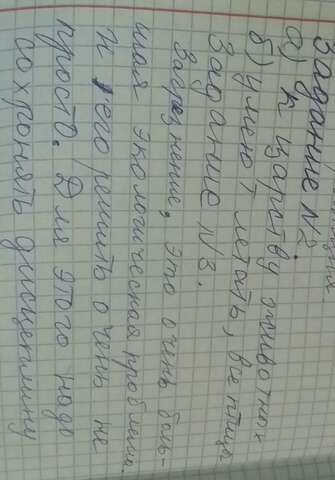 Задание №2.
а) к царству животных
б) умеют летать, все птицы
Задание №3.
Загрезнение, это очень боль-
шая экологическая проблема.
И его решить очень не
просто. Для этого надо
сохронять дисцеплину